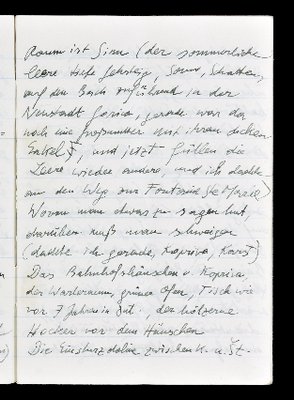 Raum ist Sinn (der sommerliche
leere tiefe Fahrsteig, Sonne, Schatten,
auf den Bach zuführend in der
Neustadt Gorica, gerade war da
noch eine Großmutter mit ihrem dicken
Enkel, und jetzt füllen die
Leere wieder andere, und ich dachte
an den Weg zur
Wovon man etwas zu sagen hat,
darüber muß man schweigen
(dachte ich gerade, Kopriva, Karst)
Das Bahnhofshäuschen v. Kopriva,
der Warteraum, grüner Ofen, Tisch wie
vor 7 Jahren in Dut., der hölzerne
Hocker vor dem Häuschen
Die Einsturzdoline zwischen K. u. Št.